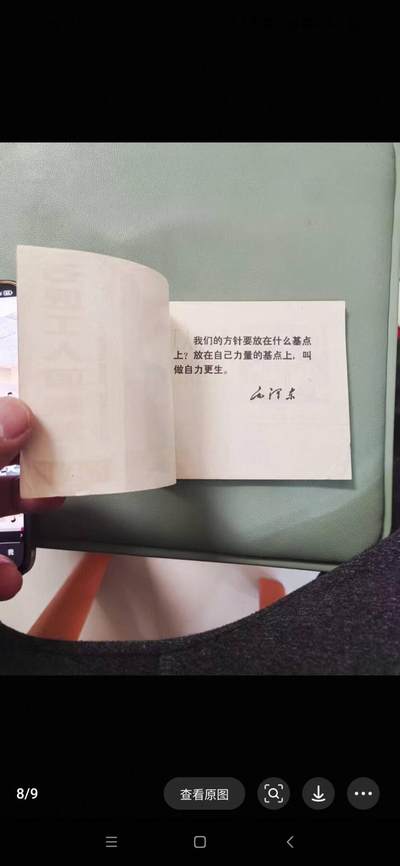 我们的方针要放在什么基点
上？放在自己力量的基点上，叫
做自力更生。
毛泽东
8/9
查看原图